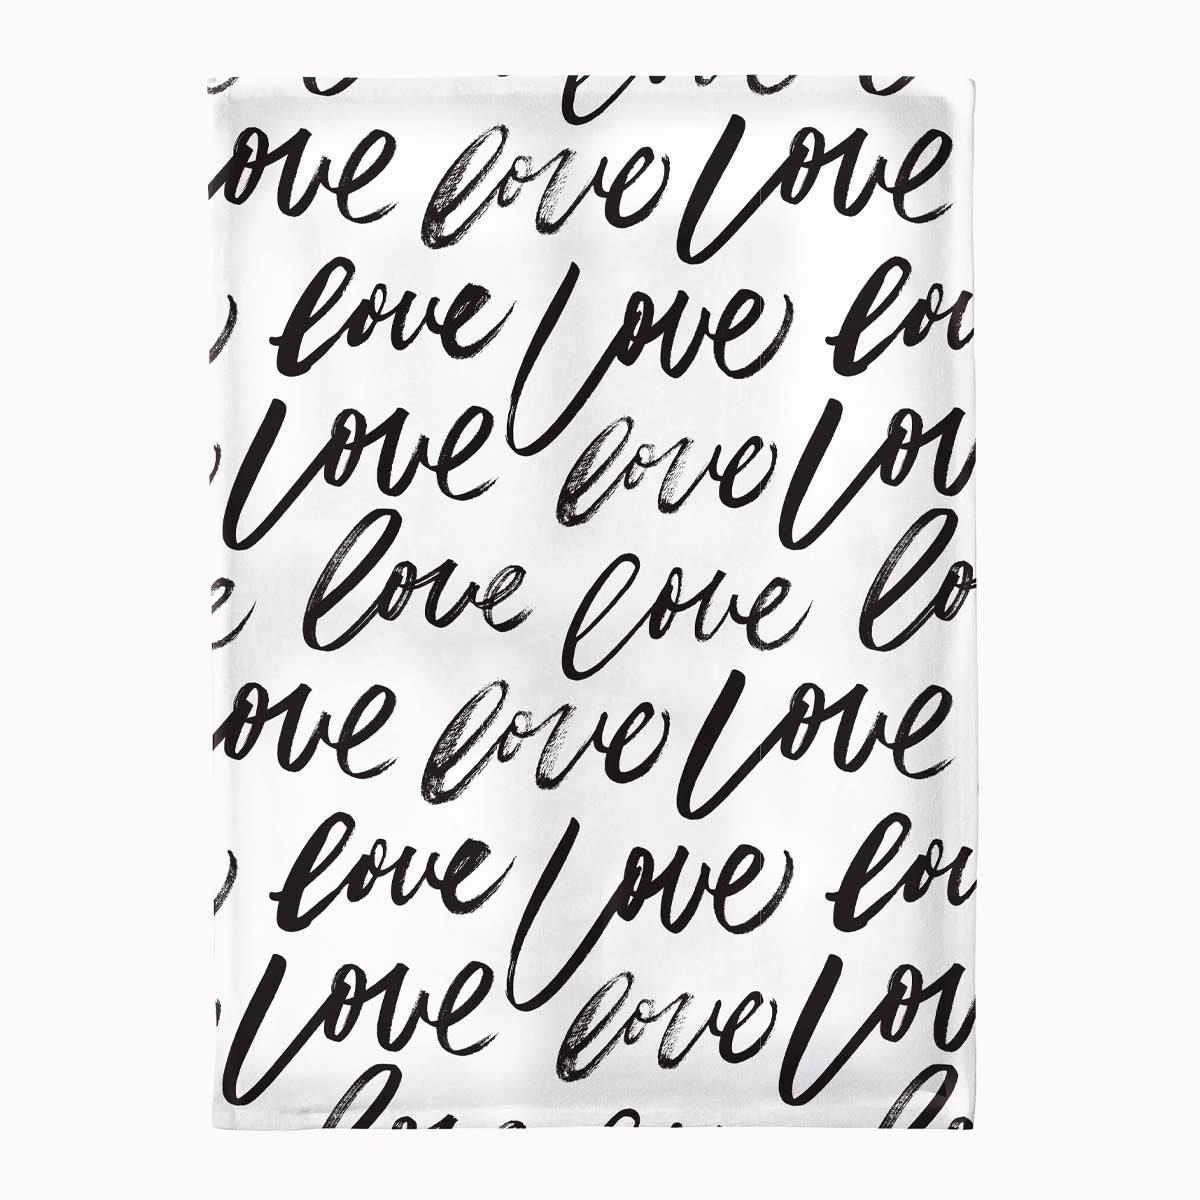 love love love
love love lo
love love lov
love love lo
love love love
love love lov
love love lov